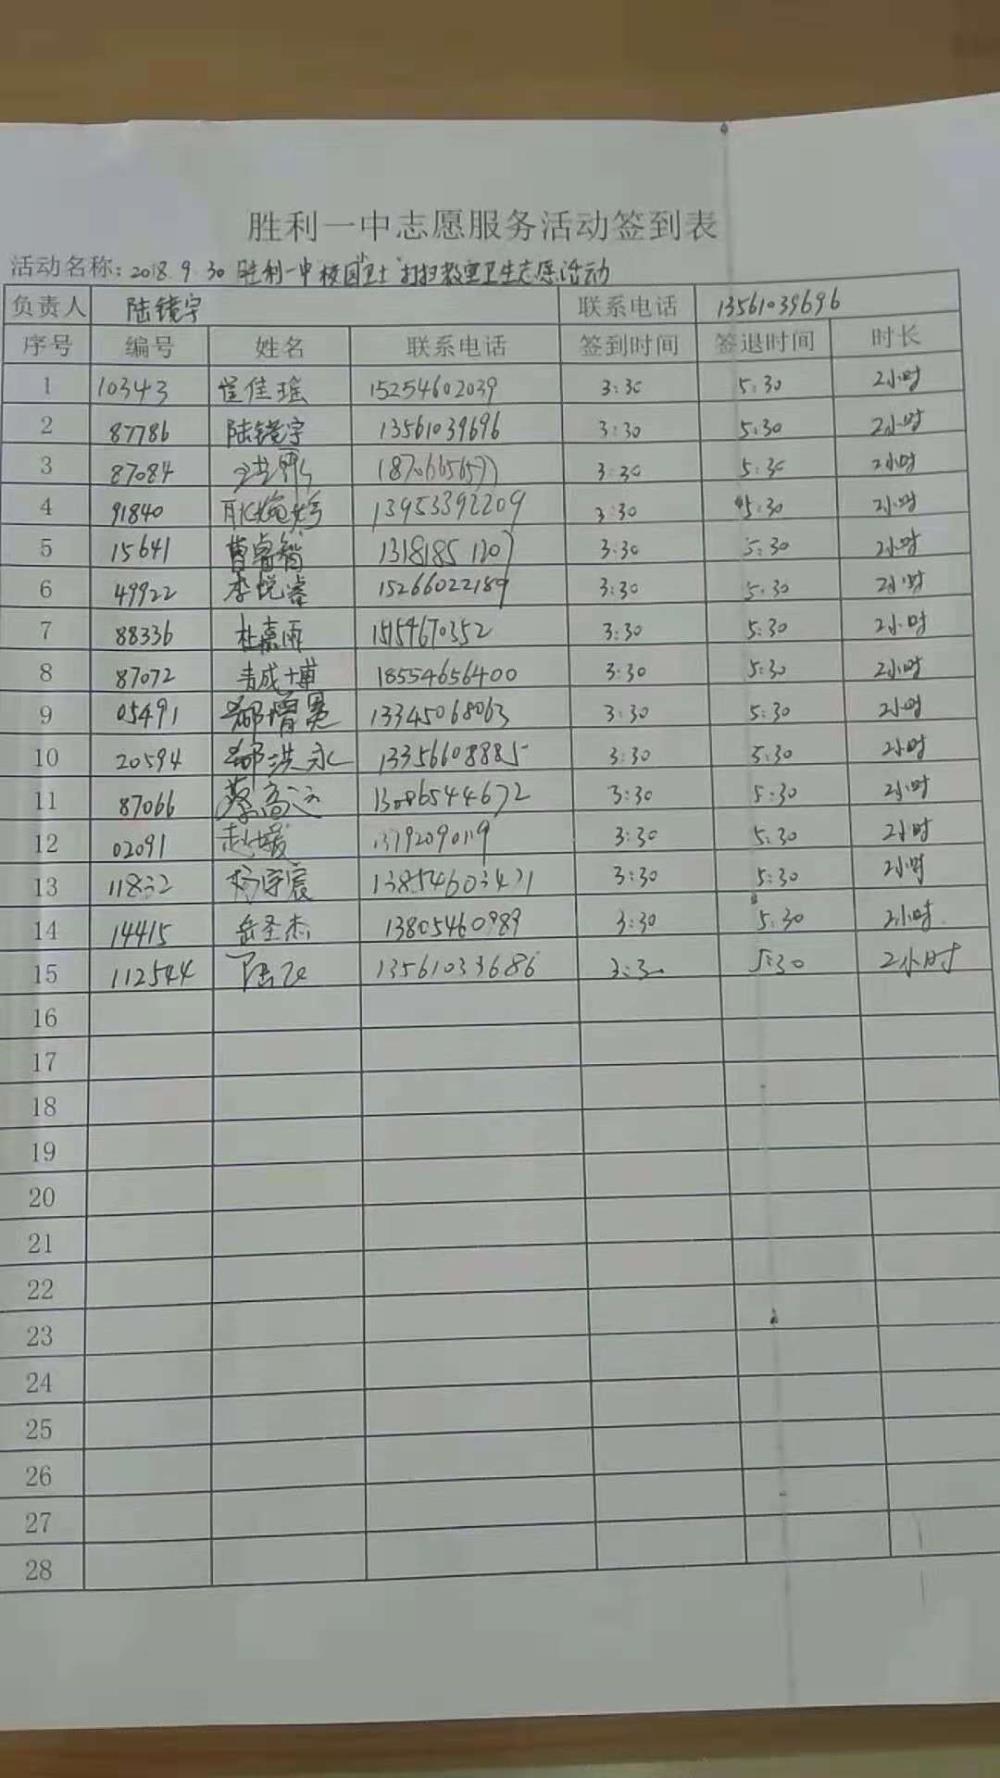 胜利一中志愿服务活动签到表
活动名称：2018.9.30 胜利一中校园"卫士"打扫教室卫生志愿活动
负责人 陆镜宇 联系电话 13561039696
序号 编号 姓名 联系电话 签到时间 签退时间 时长
1 10343 崔佳瑶 15254602039 3:30 5:30 2小时
2 87786 陆镜宇 13561039696 3:30 5:30 2小时
3 87084 3:30 5:30 2小时
4 91840 13953392209 3:30 5:30 2小时
5 15641 曹睿智 3:30 5:30 2小时
6 49922 李悦睿 15266022189 3:30 5:30 2小时
7 88336 杜嘉雨 15154670352 3:30 5:30 2小时
8 87072 18554656400 3:30 5:30 2小时
9 05491 13345068063 3:30 5:30 2小时
10 20594 13356608885 3:30 5:30 2小时
11 87066 蔡高远 13086544672 3:30 5:30 2小时
12 02091 赵媛 3:30 5:30 2小时
13 11832 杨宇宸 13854603421 3:30 5:30 2小时
14 14415 岳圣杰 13805460989 3:30 5:30 2小时
15 112544 13561033686 3:30 5:30 2小时
16
17
18
19
20
21
22
23
24
25
26
27
28